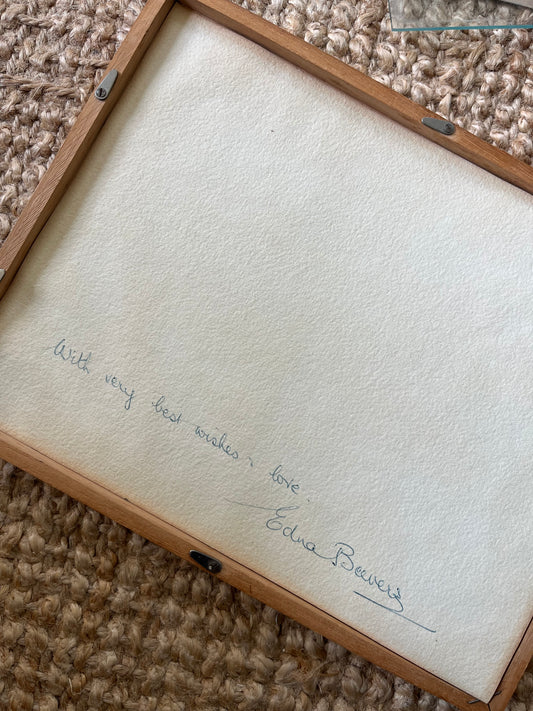 With very best wishes & love.
Edna Beevers